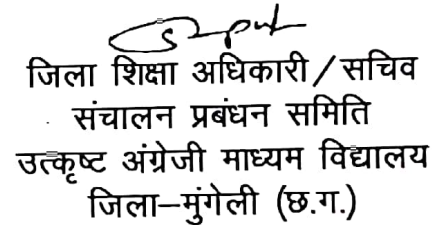 जिला शिक्षा अधिकारी/सचिव
संचालन प्रबंधन समिति
उत्कृष्ट अंग्रेजी माध्यम विद्यालय
जिला–मुंगेली (छ.ग.)